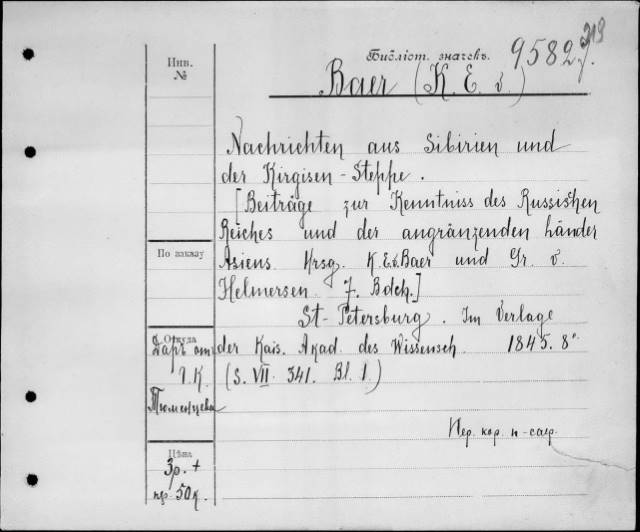 213
Библіот. значекъ. 9582
Инв.
№
Baer (K. E. v.)
Nachrichten aus Sibirien und
der Kirgisen-Steppe.
[Beiträge zur Kenntniss des Russischen
Reiches und der angränzenden Länder
По заказу
Asiens. Hrsg. K. E. v. Baer und Gr. v.
Helmersen. 7. Bdch.]
St-Petersburg. Im Verlage
Откуда
Даръ отъ
der Kais. Akad. des Wissensch. 1845. 8°
I. K. (S. VII. 341. Bl. 1.)
Тюменцева
Пер. кор. п-саф.
Цѣна
3р. +
пр 50к.